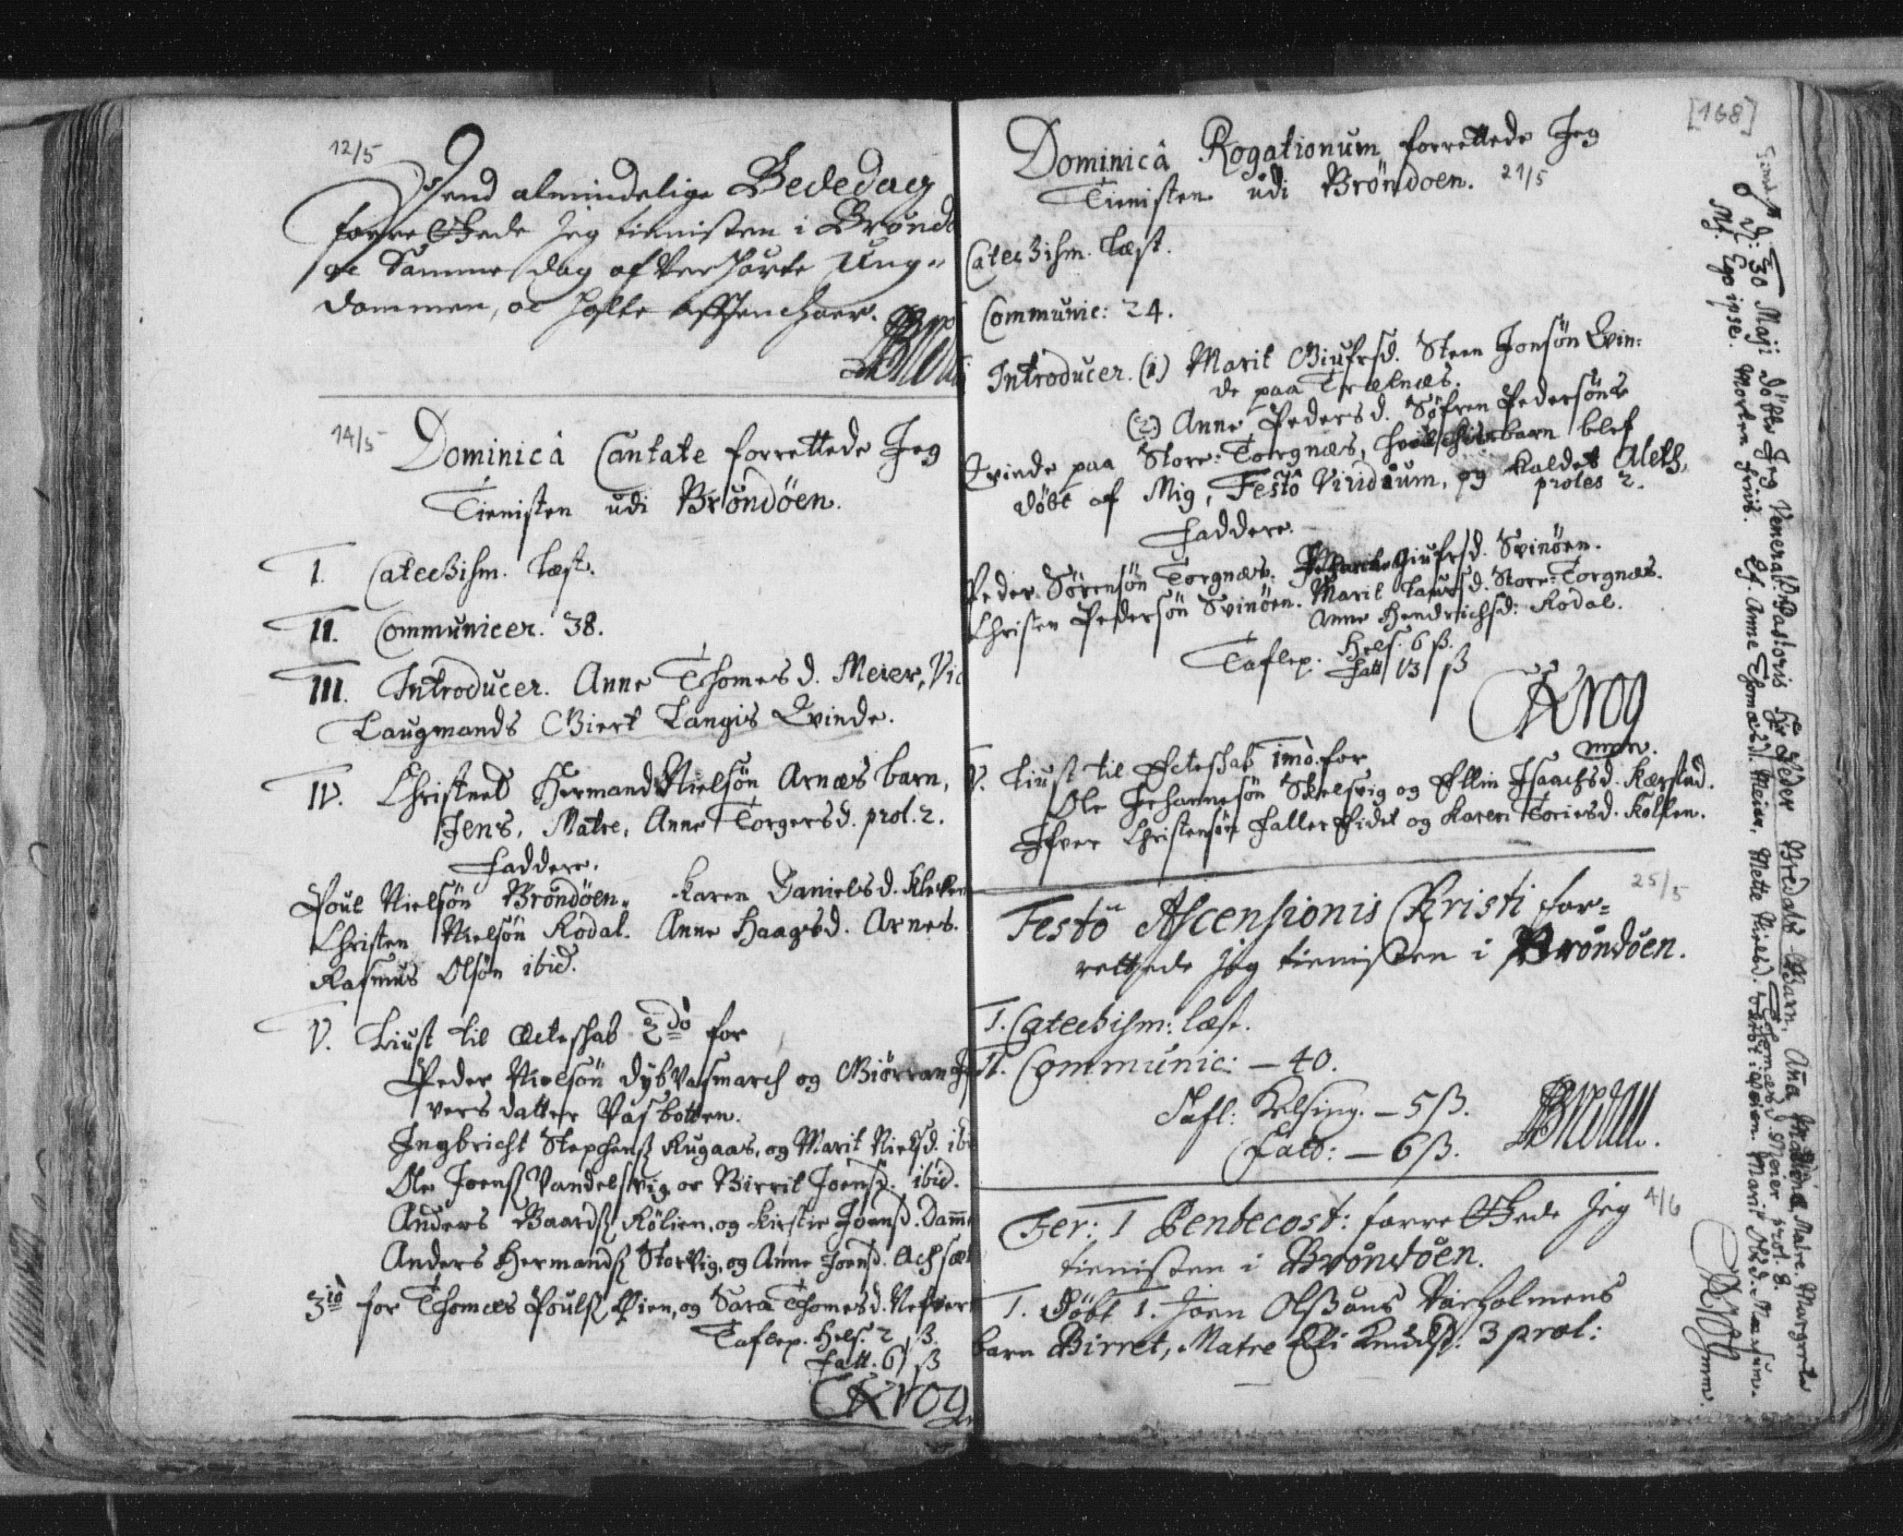 12/5
Dend almindelige Bededag
forrettede jeg tienisten i Brønd
oc Samme dag ofverhørte Ung-
dommen, oc holte afftenchoer.
14/5
Dominicâ Cantate forrettede Jeg
Tienisten udi Brøndöen.
I. Catechism. læst.
II. Communicer. 38.
III. Introducer. Anne Thomesd. Meier, Vic
Laugmands Giert Langis Qvinde.
IV. Christned Hermand Nielsön Arnæs barn,
Jens, Matre, Anne Torgersd. prol. 2.
Faddere.
Poul Nielsön Brøndöen. Karen Danielsd. Kleven
Christen Nielsön Rodal. Anne Haagsd. Arnes.
Rasmus Olsön ibid.
V. Liust til Ecteskab 2do for
Peder Nielsön Dybvasmarch og Giörran J
vers datter Vasbotten.
Ingbricht Stephenß Rugaas, og Marit Nielsd. ibi
Ole Joenß Vandelsvig oc Birrit Joensd. ibid.
Anders Baardß Rölien, og Kirstie Joensd. Damm
Anders Hermandß Storvig, og Anne Joensd. Achsæt
3io for Thomes Poulß Øien, og Sara Thomesd. Nefver
Taflep. Hels. 2 ß.
Fatt. 6 ß
CKrog
[168]
Dominicâ Rogationum forrettede Jeg
Tienisten udi Brøndoen. 21/5
Catechism. læst.
Communic: 24.
Introducer. (1) Marit Giufrsd. Steen Jonsön Qvin:
de paa Trælnæs.
(2) Anne Pedersd. Söfren Pedersöns
Qvinde paa Store-Torgnæs, barn blef
döbt af Mig, Festô Viridium, og kaldet Aleth,
proles 2.
Faddere.
Peder Sörensön Torgnæs. Marit Giufrsd. Svinöen.
Christen Pedersön Svinöen. Marit Laursd. Store-Torgnæs.
Anne Hendrichsd: Rodal.
Taflep. Hels. 6 ß.
Fatt. 13 ß
CKrog
mpr.
V. Liust til Ecteskab 1mò for
Ole Johannesön Skelsvig og Ellin Isaachsd. Kærstad.
Ifver Christensön og Karen Toriesd. Kolsen.
25/5
Festo Ascensionis Christi for=
rettede jeg tienisten i Brøndöen.
I. Catechism: læst.
II. Communic: — 40.
Tafl: Helsing. — 5 ß.
Fatt: — 6 ß.
Fer: 1 Pentecost: forrettede jeg 4/6
tienisten i Brøndöen.
I. Döbt 1. Joen Olßöns Varholmens
barn Birret, Matre Elli Knudsd. 3 prol:
d: 30 Maji döbte Jeg Venerab. Pastoris Hr Peder Bredals Barn, Aña, Matre, Margrete
Thomæsd. Meier prol. 8.
Mg. Ego ipse. Morten Friis. Anne Thomæsd. Meier, Mette Nielsd. Marit
CKrog mm.